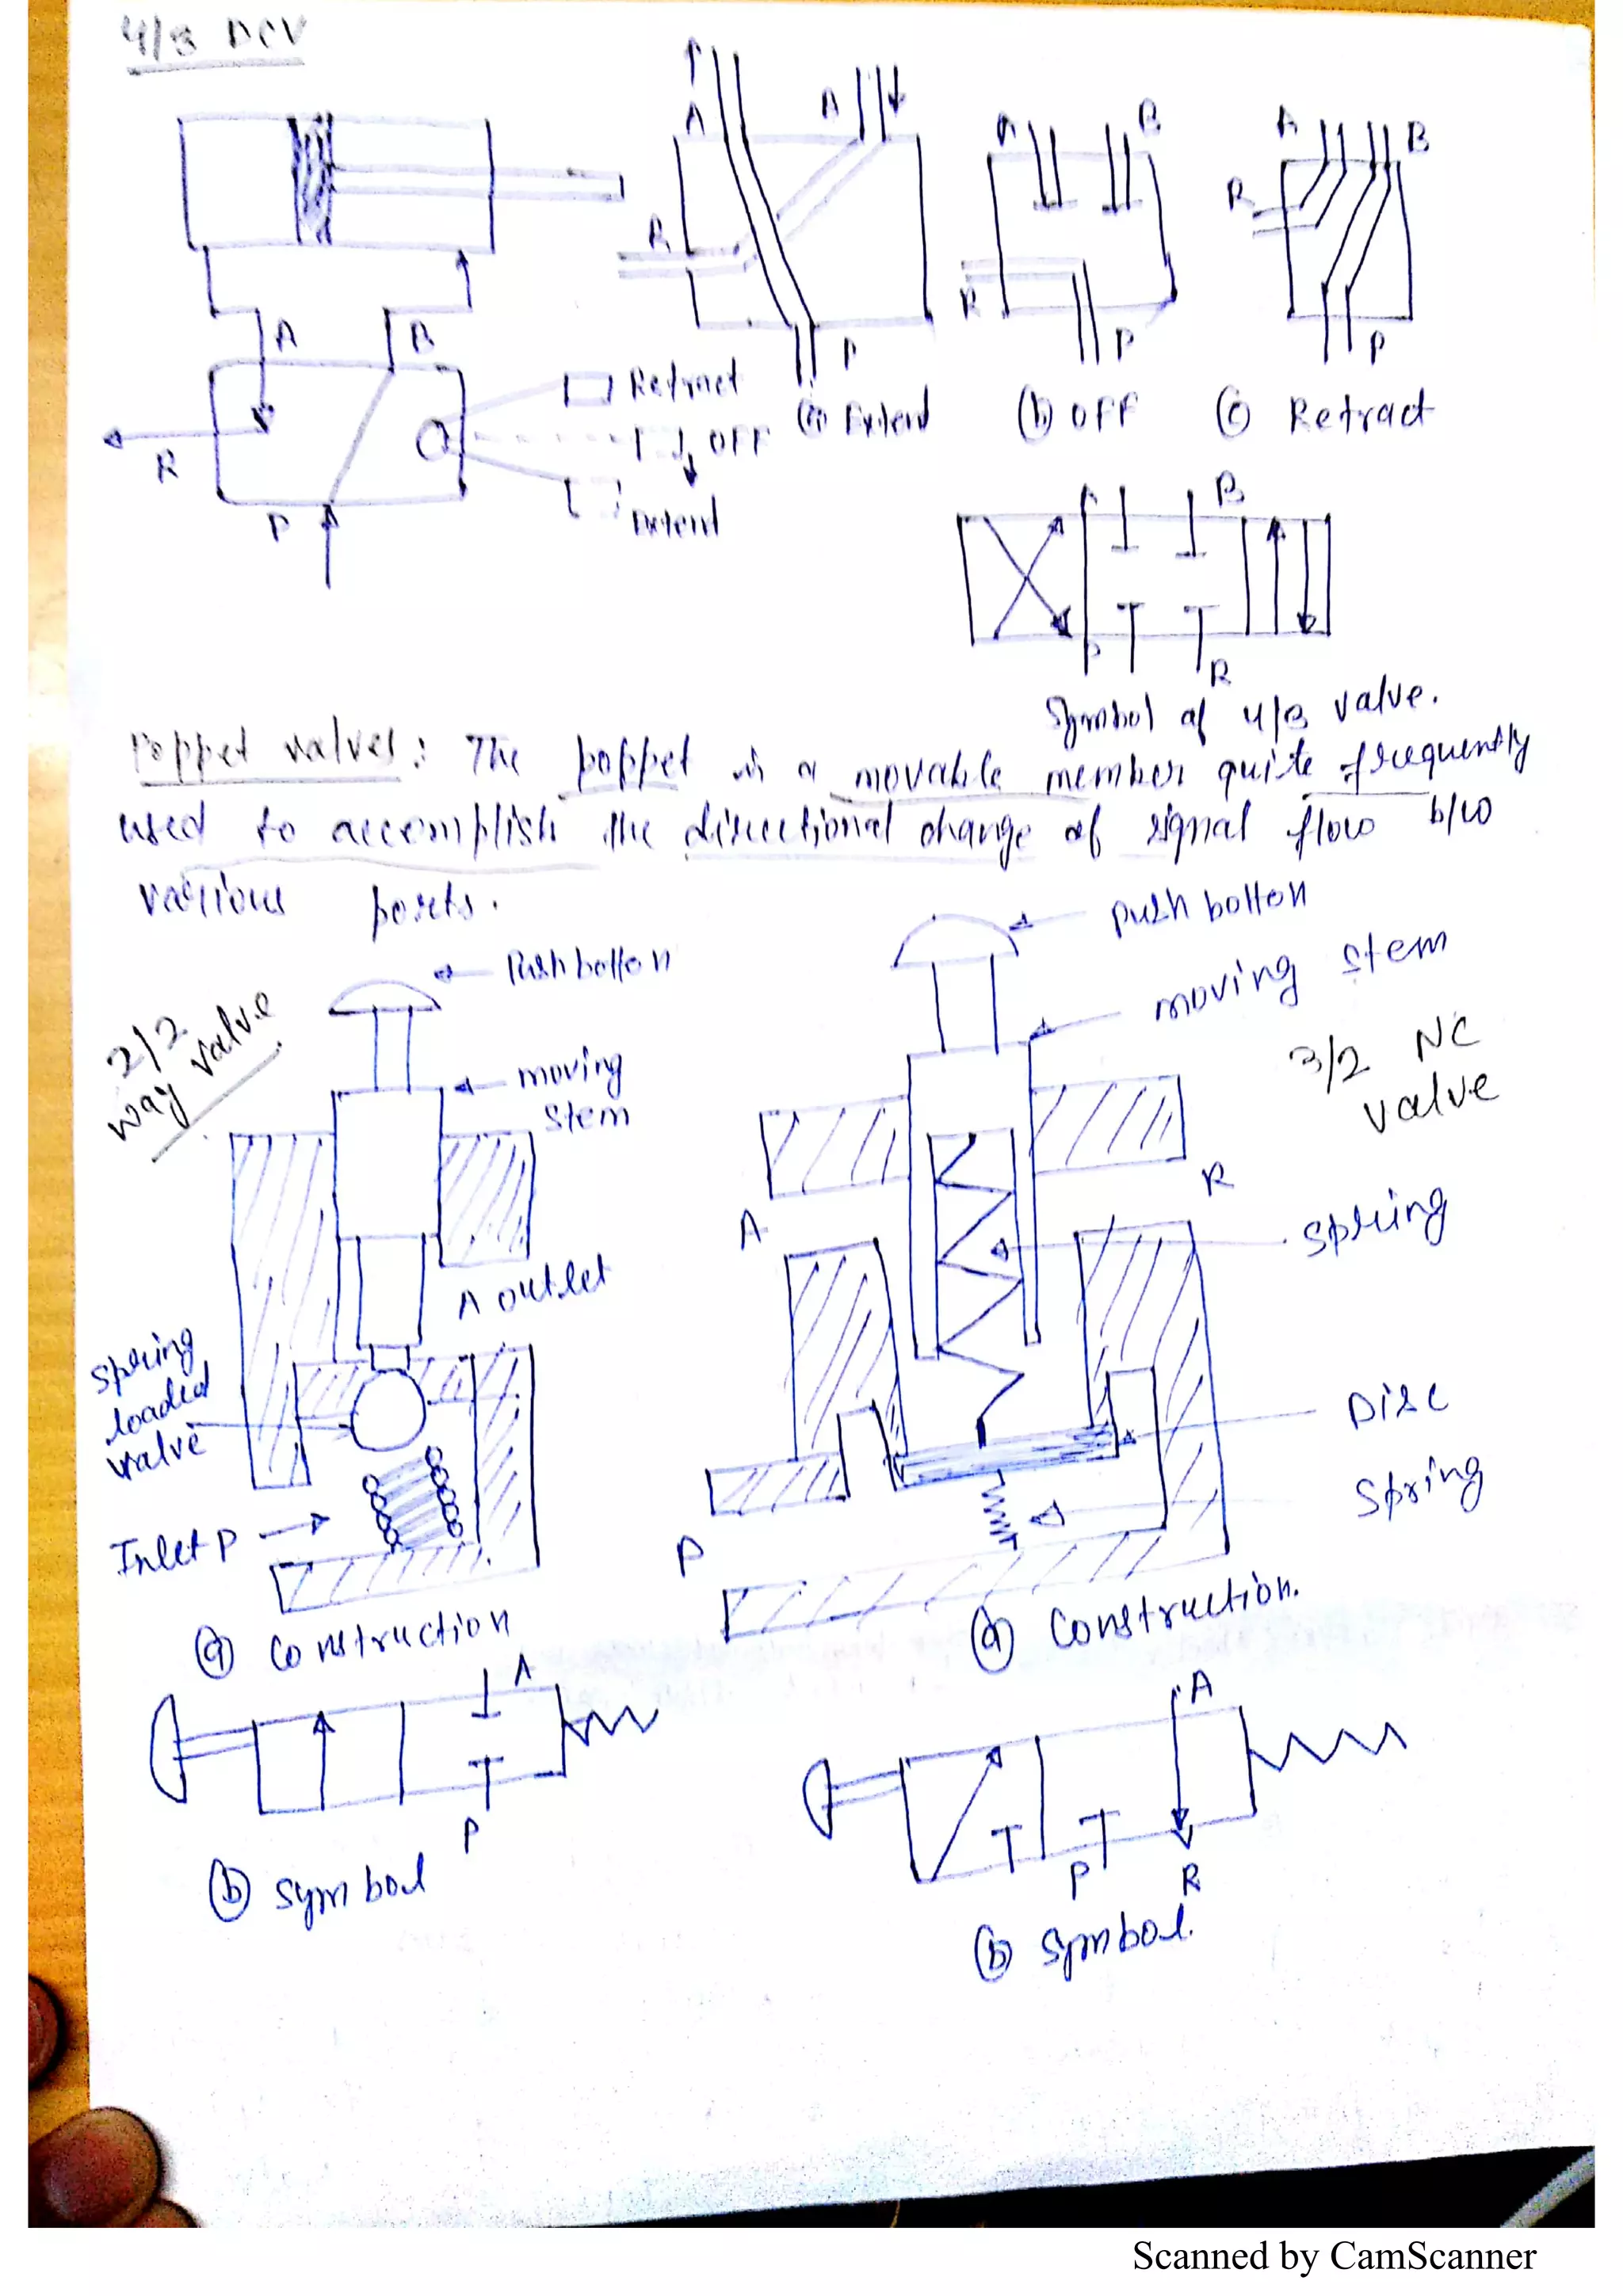 4/3 DCV
A A
R
P
(a) Extend
A B
R
P
(b) OFF
A B
R
P
(c) Retract
A B
R
P
Retract
OFF
Extend
A B
P R
Symbol of 4/3 valve.
Poppet valves: The poppet is a movable member quite frequently
used to accomplish the directional change of signal flow b/w
various ports.
2/2
way valve
Push botton
moving
stem
A outlet
spring
loaded
valve
Inlet P
(a) Construction
A
P
(b) symbol
push botton
moving stem
3/2 NC
valve
A
R
spring
Disc
spring
P
(a) Construction.
A
P R
(b) symbol.
Scanned by CamScanner